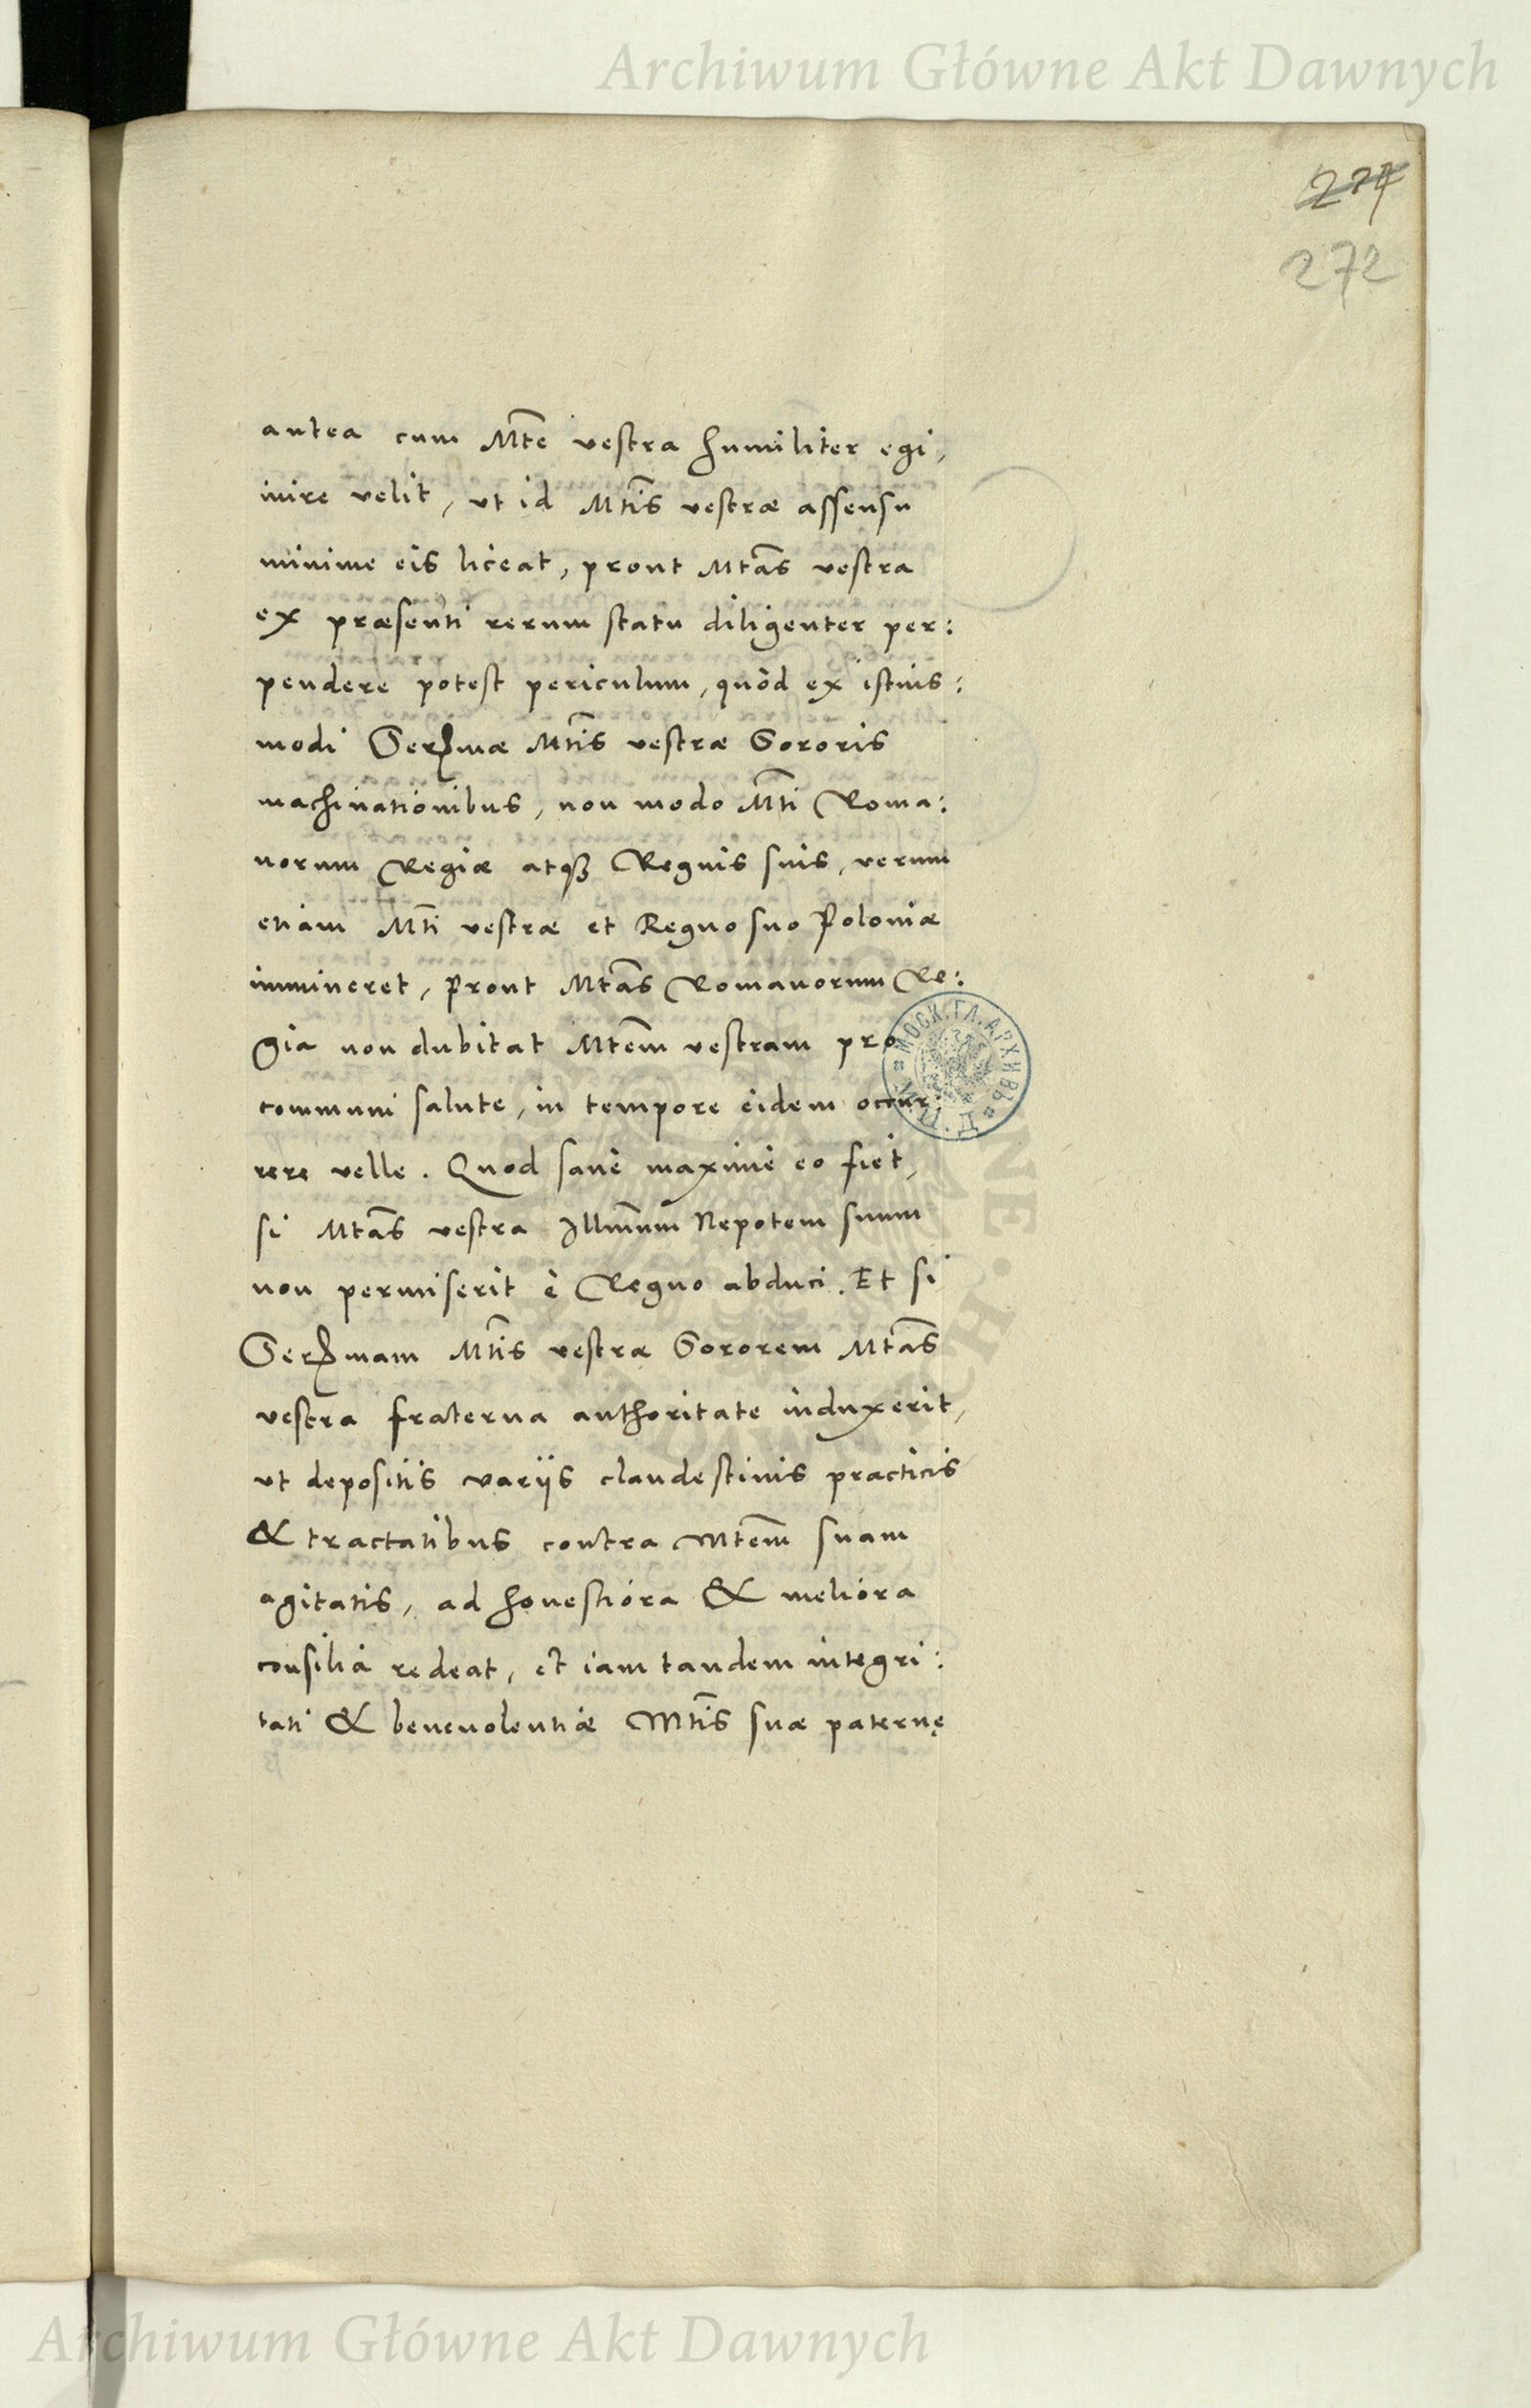 Archiwum Główne Akt Dawnych
272
antea cum Mte vestra humiliter egi,
inire velit, ut id Mtis vestræ assensu
minime eis liceat, prout Mtas vestra
ex præsenti rerum statu diligenter per:
pendere potest periculum, quòd ex istius:
modi Sermæ Mtis vestræ Sororis
machinationibus, non modo Mti Roma:
norum Regiæ atq3 Regnis suis, verum
etiam Mti vestræ et Regno suo Poloniæ
immineret, prout Mtas Romanorum Re:
gia non dubitat Mtem vestram pro
communi salute, in tempore eidem occur:
rere velle. Quod sanè maximè eo fiet,
si Mtas vestra Illmum Nepotem suum
non permiserit è Regno abduci. Et si
Sermam Mtis vestræ Sororem Mtas
vestra fraterna authoritate induxerit,
ut depositis varijs clandestinis practicis
& tractatibus contra Mtem suam
agitatis, ad honestiora & meliora
consilia redeat, et iam tandem integri:
tati & benevolentiæ Mtis suæ paternę
МОСК. ГЛ. АРХИВЪ
Archiwum Główne Akt Dawnych